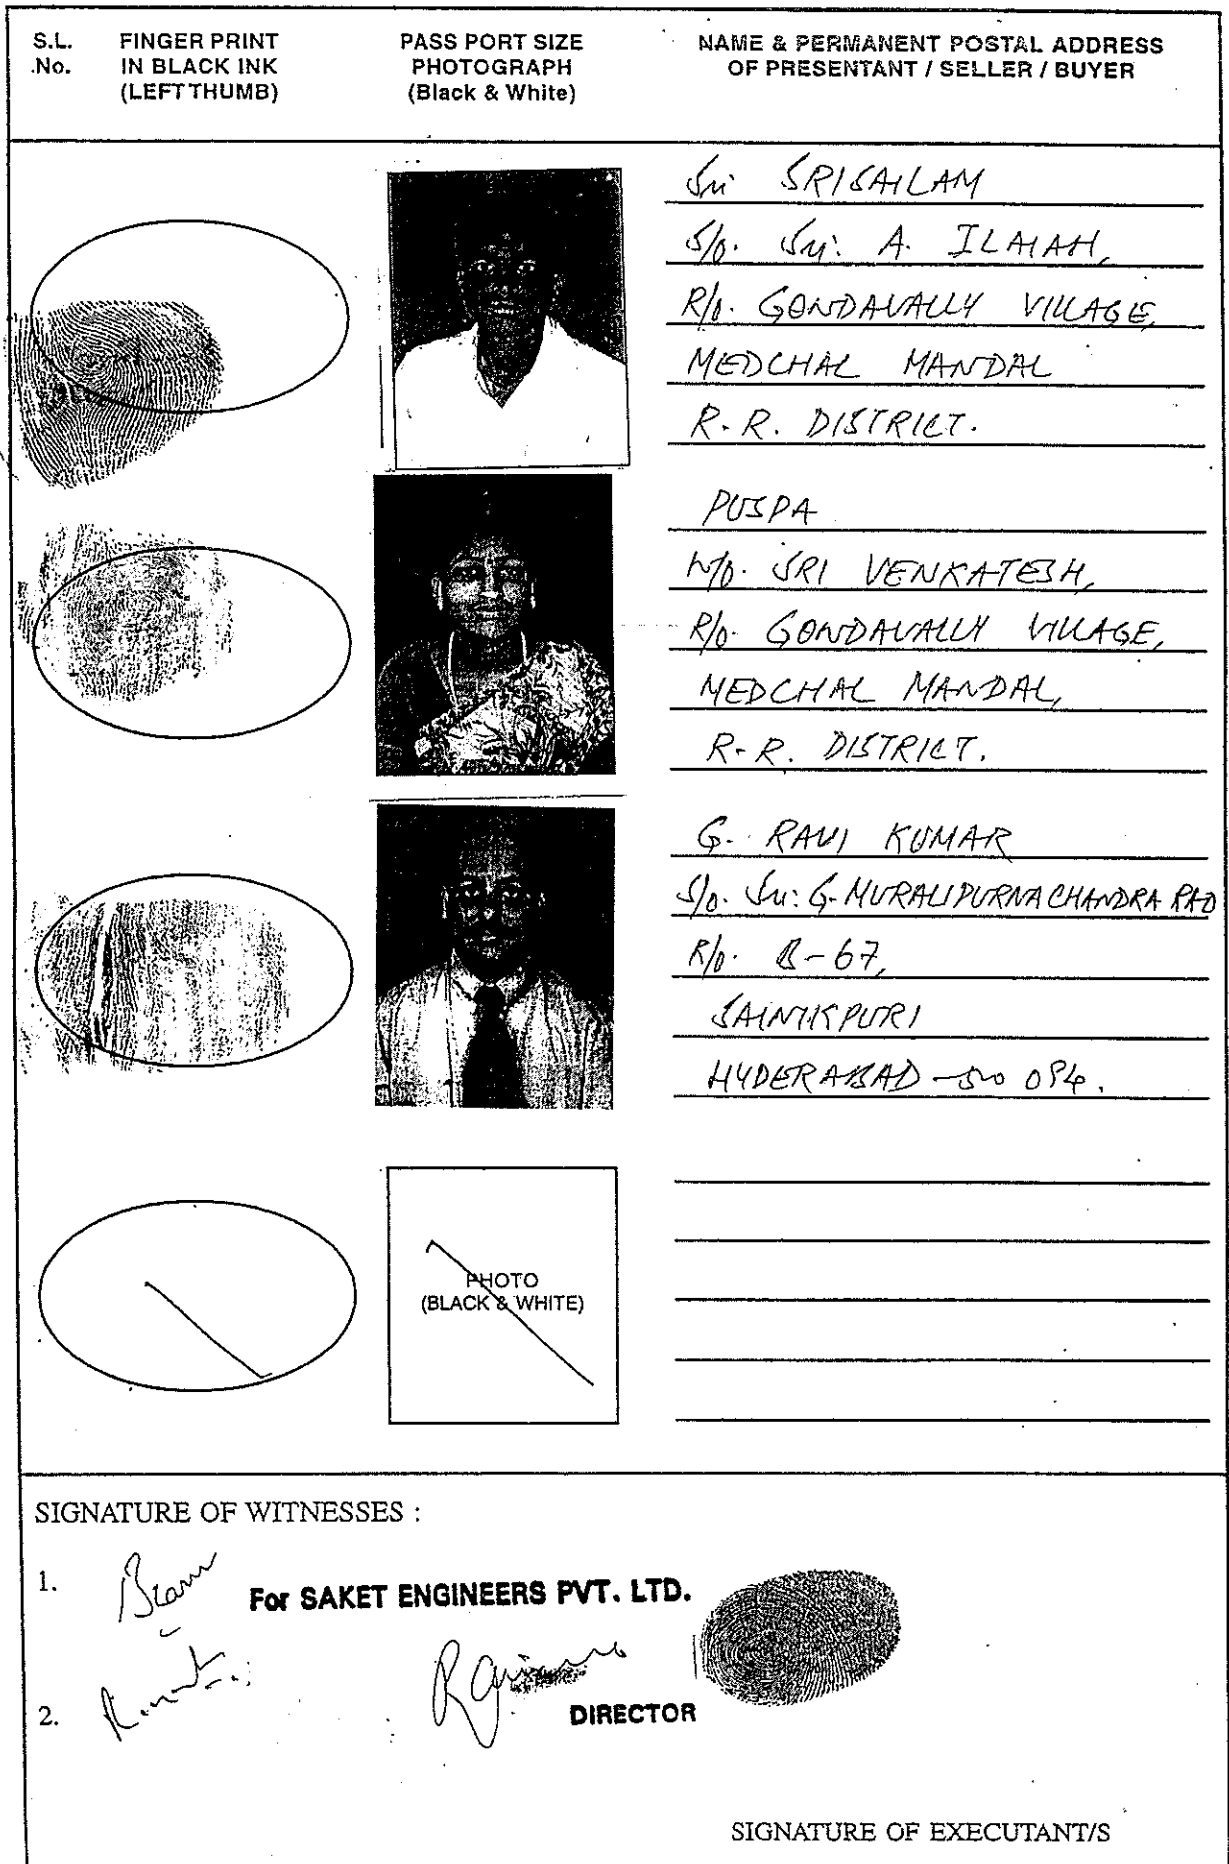 S.L. No.
FINGER PRINT IN BLACK INK (LEFT THUMB)
PASS PORT SIZE PHOTOGRAPH (Black & White)
NAME & PERMANENT POSTAL ADDRESS OF PRESENTANT / SELLER / BUYER
Sri SRISAILAM
S/o. Sri: A. ILAIAH,
R/o. GONDAVALLY VILLAGE,
MEDCHAL MANDAL
R.R. DISTRICT.
PUSPA
W/o. SRI VENKATESH,
R/o. GONDAVALLY VILLAGE,
MEDCHAL MANDAL,
R.R. DISTRICT.
G. RAVI KUMAR
S/o. Sri: G. MURALIPURNACHANDRA RAO
R/o. B-67,
SAINIKPURI
HYDERABAD - 500 094.
PHOTO
(BLACK & WHITE)
SIGNATURE OF WITNESSES :
1.
For SAKET ENGINEERS PVT. LTD.
2.
DIRECTOR
SIGNATURE OF EXECUTANT/S